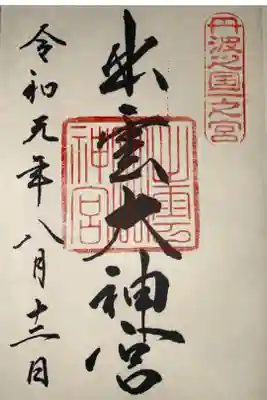 丹波之国一之宮
出雲大神宮
出雲神宮
令和元年八月十三日